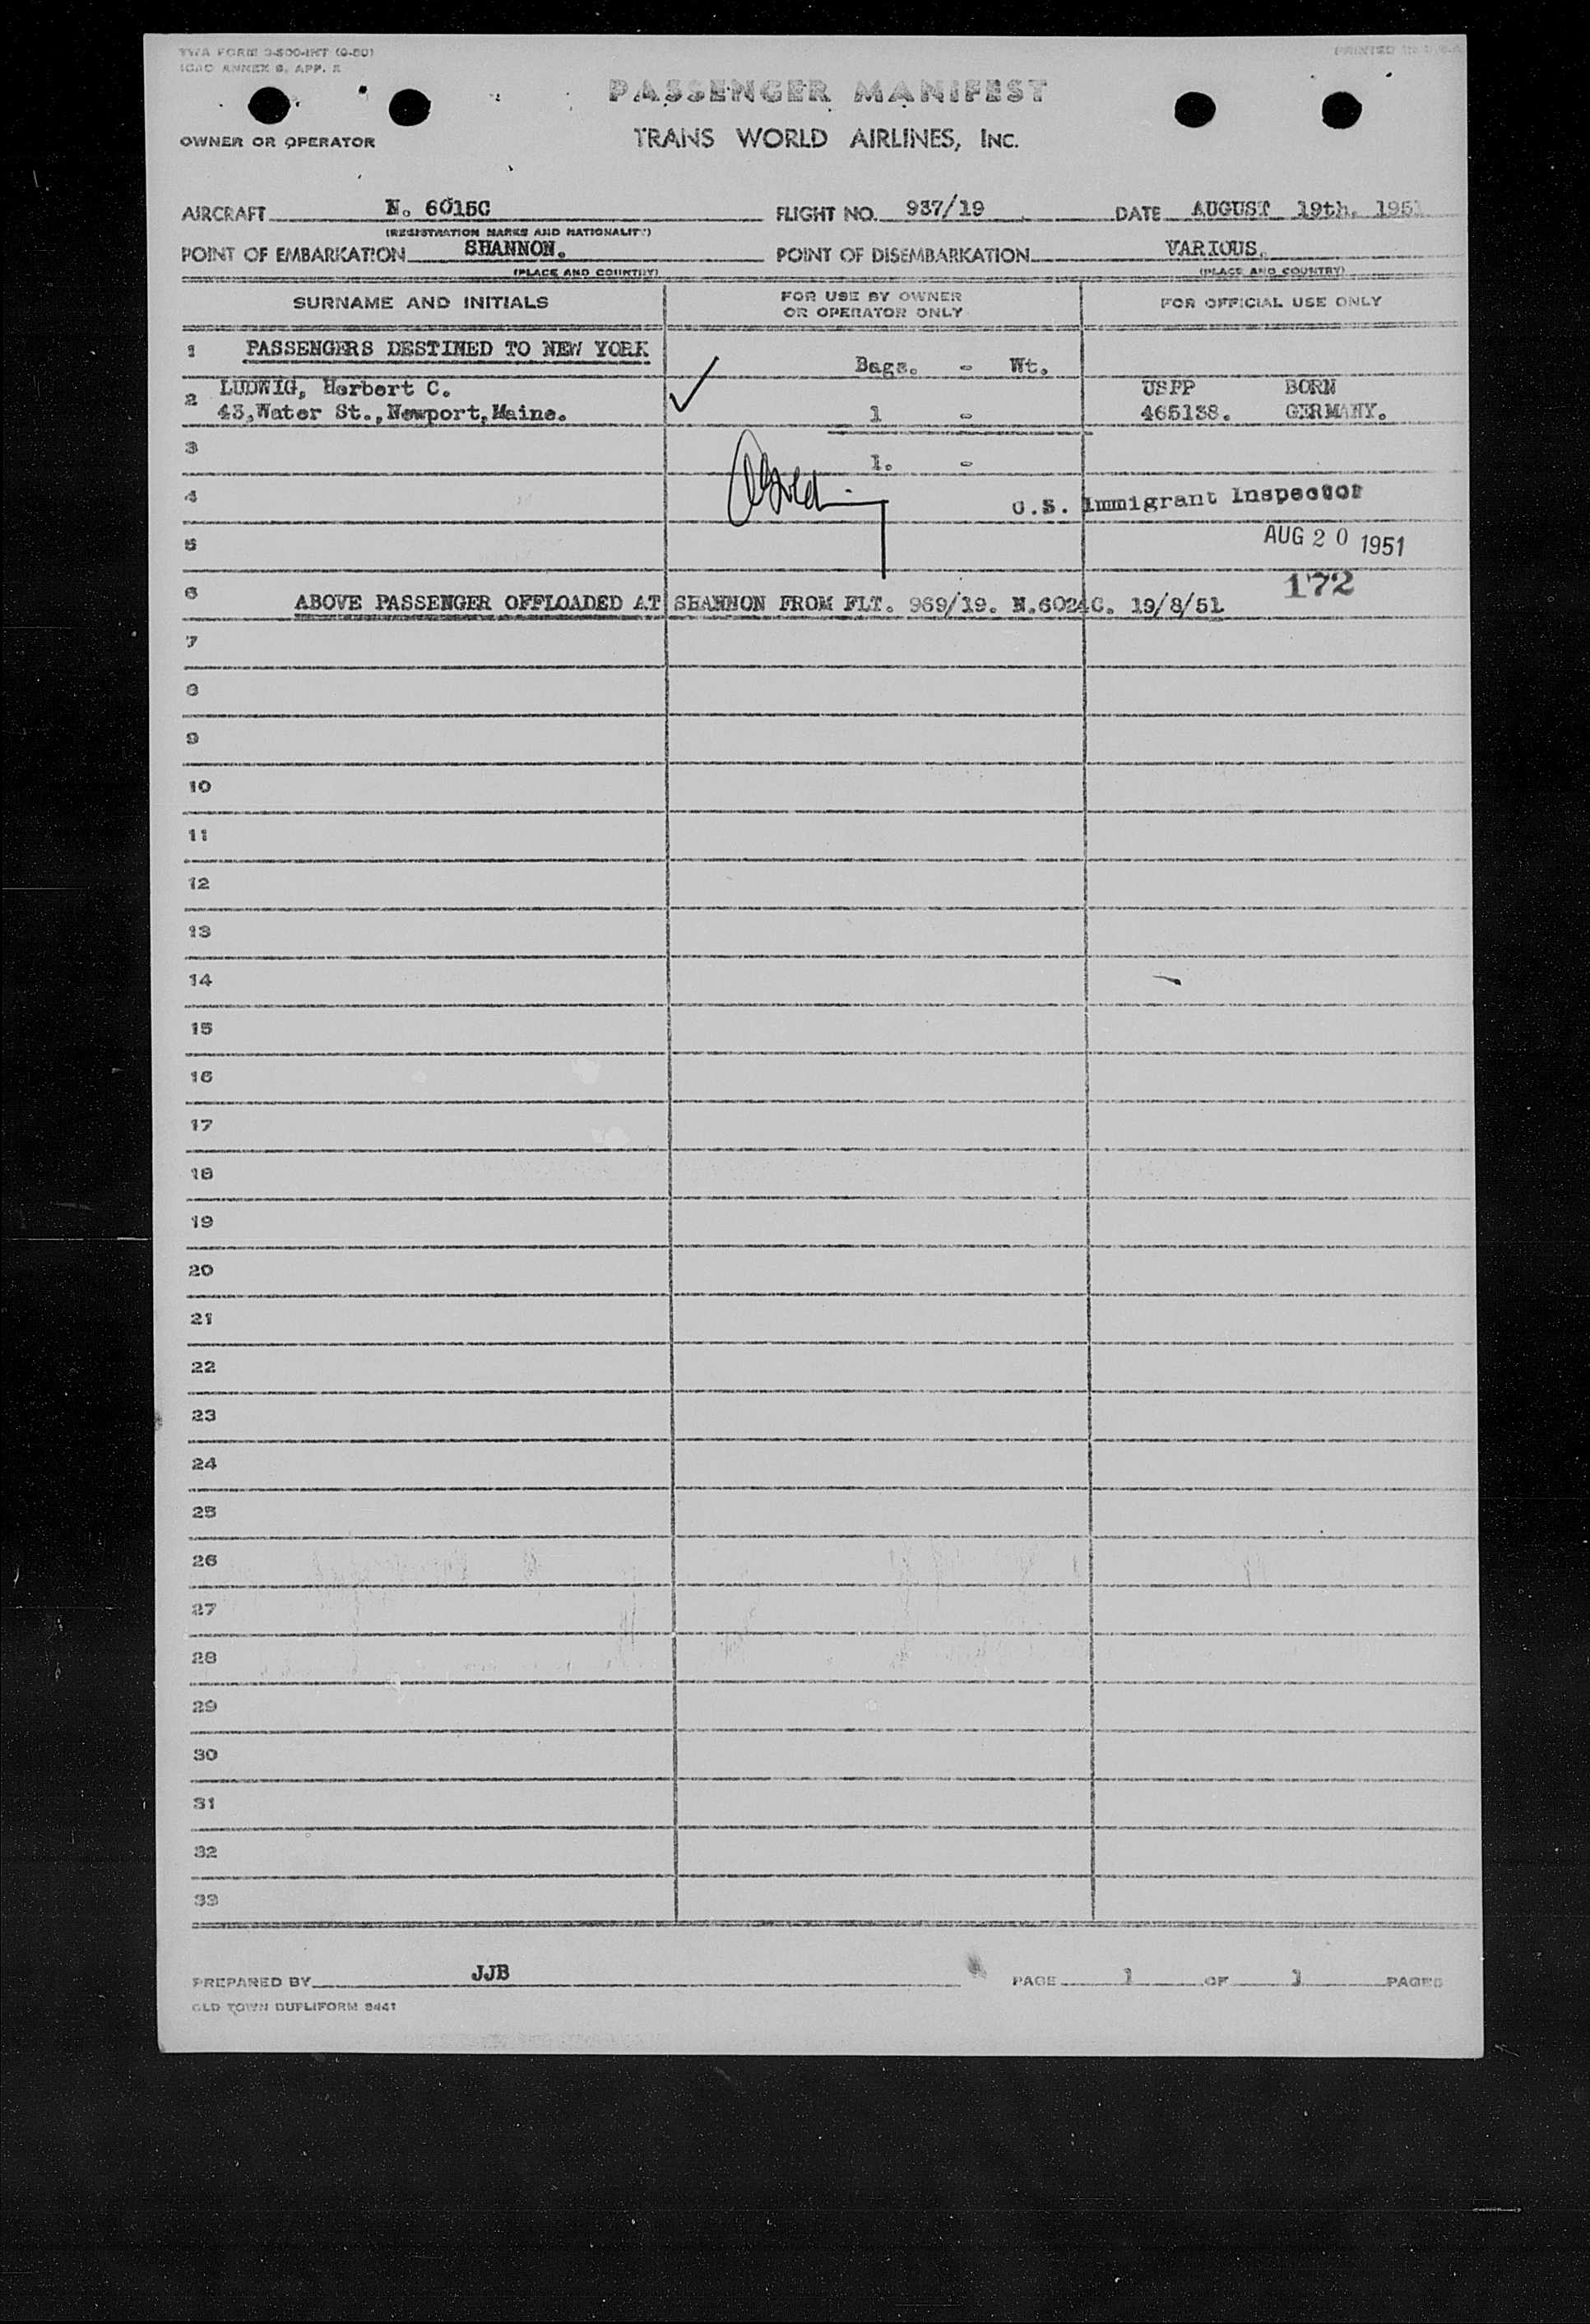 TWA FORM 3-500-INT (9-50)
PRINTED IN U.S.A.
ICAO ANNEX 9, APP. 2
PASSENGER MANIFEST
OWNER OR OPERATOR TRANS WORLD AIRLINES, INC.
AIRCRAFT N. 6015C FLIGHT NO. 937/19 DATE AUGUST 19th. 1951
(REGISTRATION MARKS AND NATIONALITY)
POINT OF EMBARKATION SHANNON. POINT OF DISEMBARKATION VARIOUS.
(PLACE AND COUNTRY) (PLACE AND COUNTRY)
SURNAME AND INITIALS FOR USE BY OWNER OR OPERATOR ONLY FOR OFFICIAL USE ONLY
1 PASSENGERS DESTINED TO NEW YORK Bags. - Wt.
2 LUDWIG, Herbert C. USPP BORN
43,Water St.,Newport,Maine. ✓ 1 - 465138. GERMANY.
3 1. -
4 U.S. Immigrant Inspector
5 AUG 20 1951
172
6 ABOVE PASSENGER OFFLOADED AT SHANNON FROM FLT. 969/19. N.6024C. 19/8/51
7
8
9
10
11
12
13
14
15
16
17
18
19
20
21
22
23
24
25
26
27
28
29
30
31
32
33
PREPARED BY JJB PAGE 1 OF 1 PAGES
OLD TOWN DUPLIFORM 9441